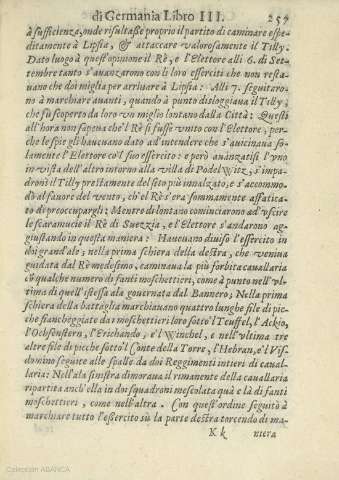 di Germania Libro III. 257
à sufficienza, onde risultasse proprio il partito di caminare espe-
ditamente à Lipsia, & attaccare valorosamente il Tilly.
Dato luogo à quest'opinione il Rè, e l'Elettore alli 6. di Set-
tembre tanto s'auanzorno con li loro esserciti che non resta-
uano che doi miglia per arriuare à Lipsia: Alli 7. seguitaro-
no à marchiare auanti, quando à punto disloggiaua il Tilly,
che fù scoperto da loro vn miglio lontano dalla Città: Questi
all'hora non sapeua che'l Rè si fusse vnito con l'Elettore, per-
che le spie gli haueuano dato ad intendere che s'auicinaua so-
lamente l'Elettore co'l suo essercito: e però auanzatisi l'vno
in vista dell'altro intorno alla villa di PodelWitz, s'impa-
dronì il Tilly prestamente del sito più innalzato, e s'accommo-
dò al fauore del vento, ch'el Rè s'era sommamente affatica-
to di preoccupargli: Mentre di lontano cominciarono ad vscire
le scaramucie il Rè di Suezzia, e l'Elettore s'andarono ag-
giustando in questa maniera: Haueuano diuiso l'essercito in
doi grand'ale; nella prima schiera della destra, che veniua
guidata dal Rè medesimo, caminaua la più forbita cauallaria
cõ qualche numero di fanti moschettieri, come à punto nell'vl-
tima di quell'istessa ala gouernata dal Bannero; Nella prima
schiera della battaglia marchiauano quattro lunghe file di pic-
che fiancheggiate da i moschettieri loro sotto'l Teuffel, l'Ackio,
l'Ochsenstern, l'Erichando, e'l Winchel, e nell'vltima tre
altre file di picche sotto'l Conte della Torre, l'Hebran, e'l Vis-
domino seguite alle spalle da doi Reggimenti intieri di caual-
laria: Nell'ala sinistra dimoraua il rimanente della cauallaria
ripartita anch'ella in doi squadroni mescolata quà e là di fanti
moschettieri, come nell'altra. Con quest'ordine seguitò à
marchiare tutto l'essercito sù la parte destra torcendo di ma-
K k niera
Colección ABANCA